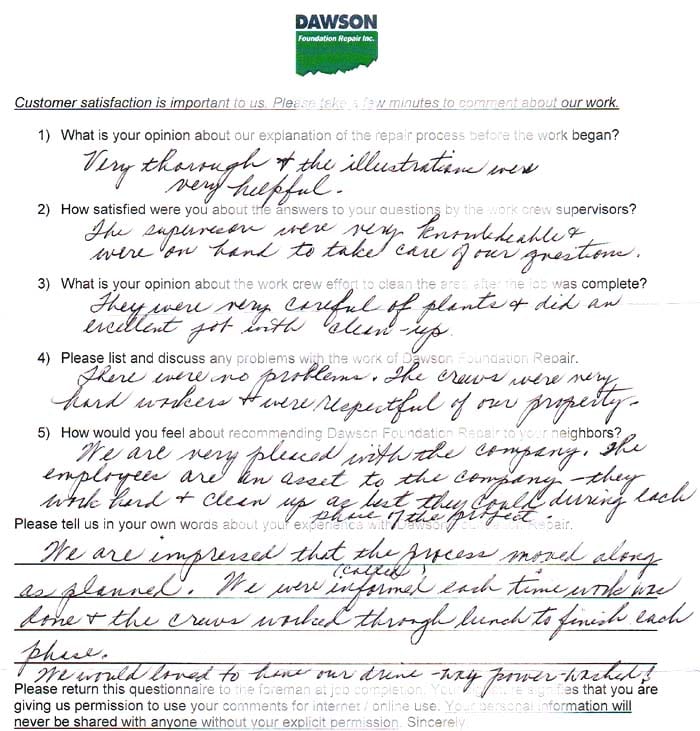 DAWSON
Foundation Repair Inc.
Customer satisfaction is important to us. Please take a few minutes to comment about our work.
1) What is your opinion about our explanation of the repair process before the work began?
Very thorough & the illustrations were
very helpful.
2) How satisfied were you about the answers to your questions by the work crew supervisors?
The supervisors were very knowledeable &
were on hand to take care of our questions.
3) What is your opinion about the work crew effort to clean the area after the job was complete?
They were very careful of plants & did an
excellent job with clean-up.
4) Please list and discuss any problems with the work of Dawson Foundation Repair.
There were no problems. The crews were very
hard workers & were respectful of our property.
5) How would you feel about recommending Dawson Foundation Repair to your neighbors?
We are very pleased with the company. The
employees are an asset to the company - they
work hard & clean up as best they could during each
phase of the project.
Please tell us in your own words about your experience with Dawson Foundation Repair.
We are impressed that the process moved along
(called)
as planned. We were informed each time work was
done & the crews worked through lunch to finish each
phase.
We would loved to have our drive-way power-washed!
Please return this questionnaire to the foreman at job completion. Your signature signifies that you are
giving us permission to use your comments for internet / online use. Your personal information will
never be shared with anyone without your explicit permission. Sincerely